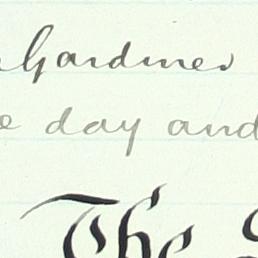 Gardiner
day and
The